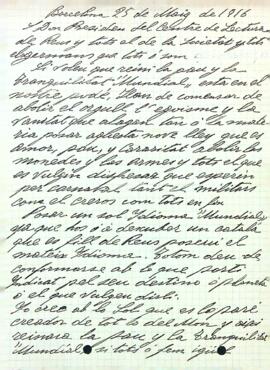 Barcelona 25 de Maig de 1916
Y Don President del Centre de Lectura
de Reus y tots al de la Societat y tots
els germans que tots ó som.
Si voleu que reini la pau y la
tranquilitat "Mundial", entre en el
nostre poble, Han de comensar de
abolir el orgull l'egoisme y la
vanitat que alagen tan á la mate
ria posar aquesta nove lley que es
amor, pau, y Caraitat abolir las
monedes y las armes y tots el que
es vulgin disfresar que esperin
per carnabal tant el militars
com el creros com tots en fin
Posar un sol Idioma "Mundial y
ya que hos ó á descubert un catala
que es fill de Reus posseui el
mateix Idioma. Totom deu de
conformarse ab lo que porta
indicat pel seu destino ó planeta
ó el que vulgeu dirli.
Jo crec ab lo Sol que es lo paré
creador de tot lo del Mon y aixi
reinara la pau y la tranquilitat
"Mundial, si tots ó fem igual